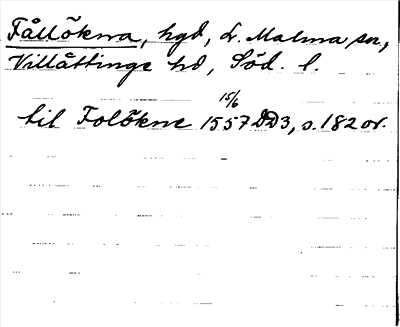 Fållökna, hgd, L. Malma sn,
Villåttinge hd, Söd. l.
15/6
til Folökne 1557 DD3, s. 182 or.